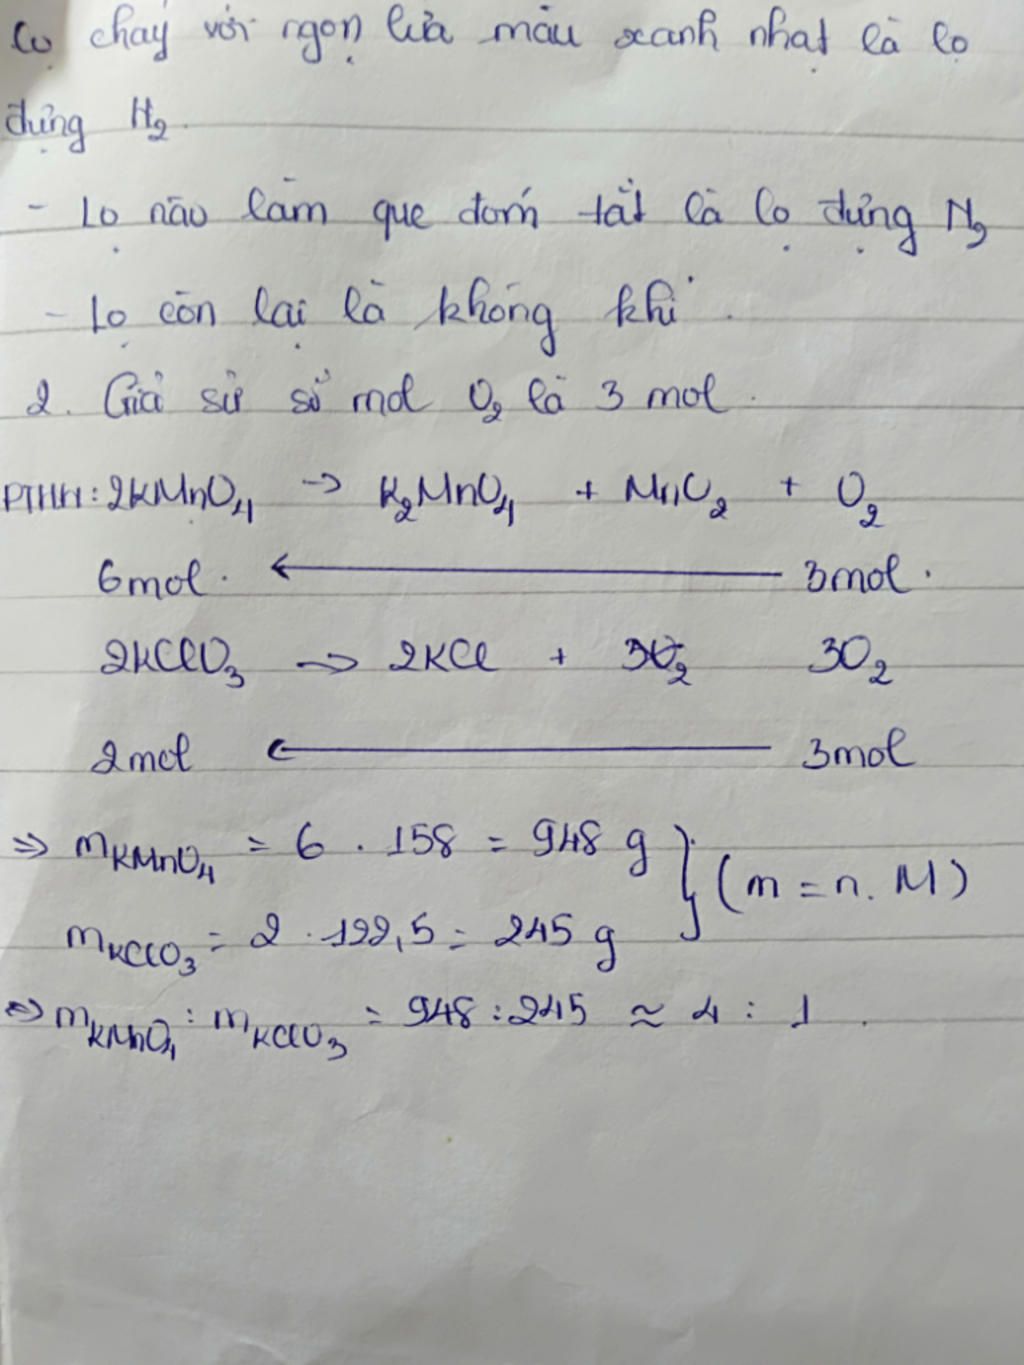 lọ cháy với ngọn lửa màu xanh nhạt là lọ
đựng H₂.
- Lọ nào làm que đóm tắt là lọ đựng N₂
- Lọ còn lại là không khí.
2. Giả sử số mol O₂ là 3 mol.
PTHH: 2KMnO₄ → K₂MnO₄ + MnO₂ + O₂
6mol. ← 3mol.
2KClO₃ → 2KCl + 3O₂ 3O₂
2mol ← 3mol
⇒ mKMnO₄ = 6 . 158 = 948 g } (m = n. M)
mKClO₃ = 2 . 122,5 = 245 g
⇒ mKMnO₄ : mKClO₃ = 948 : 245 ≈ 4 : 1.